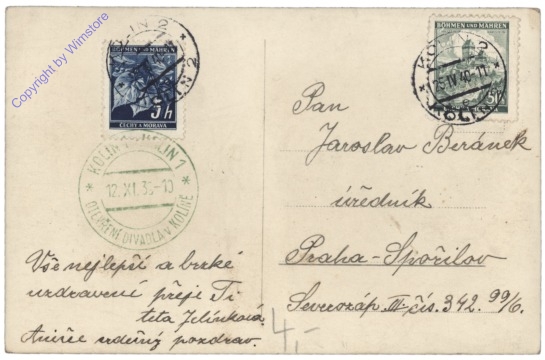 Copyright by Wimstore
KOLIN 2
BÖHMEN UND MÄHREN
KOLIN 2
5 h
ČECHY A MORAVA
KOLÍN 1
12. XI. 39-10
OTEVŘENÍ DIVADLA V KOLÍNĚ
Vše nejlepší a brzké
uzdravení přeje Ti
teta Jelínková.
srdečný pozdrav.
4,-
BÖHMEN UND MÄHREN
KOLIN 2
25. IV. 40. 11
KOLÍN
Pan
Jaroslav Beránek
úředník
Praha-Spořilov
Severozáp. III čís. 342. 99/6.